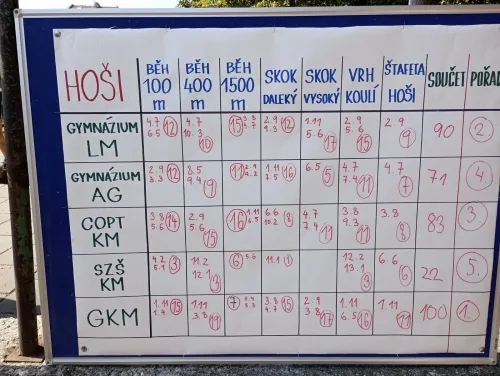 HOŠI BĚH 100 m BĚH 400 m BĚH 1500 m SKOK DALEKÝ SKOK VYSOKÝ VRH KOULÍ ŠTAFETA HOŠI SOUČET POŘAD
GYMNÁZIUM LM 4.7 6.5 12 4.7 10.3 10 15 2.9 9.3 12 1.11 5.6 17 2.9 5.6 15 2.9 9 90 2.
GYMNÁZIUM AG 2.9 3.3 12 8.5 9.4 9 11 2.9 9.2 1.11 7.5 16 6.5 5 4.7 7.4 11 4.7 7 71 4.
COPT KM 3.8 5.6 14 2.9 5.6 15 16 1.11 6.5 6.6 10.2 8 4.7 7.4 11 3.8 9.3 11 3.8 8 83 3.
SZŠ KM 4.2 8.1 3 11.2 12.1 3 6 5.6 11.1 1 12.2 13.1 3 6.6 6 22 5.
GKM 1.11 1.4 15 1.11 3.8 19 7 3.8 4.7 15 2.9 3.8 17 1.11 6.5 16 1.11 11 100 1.